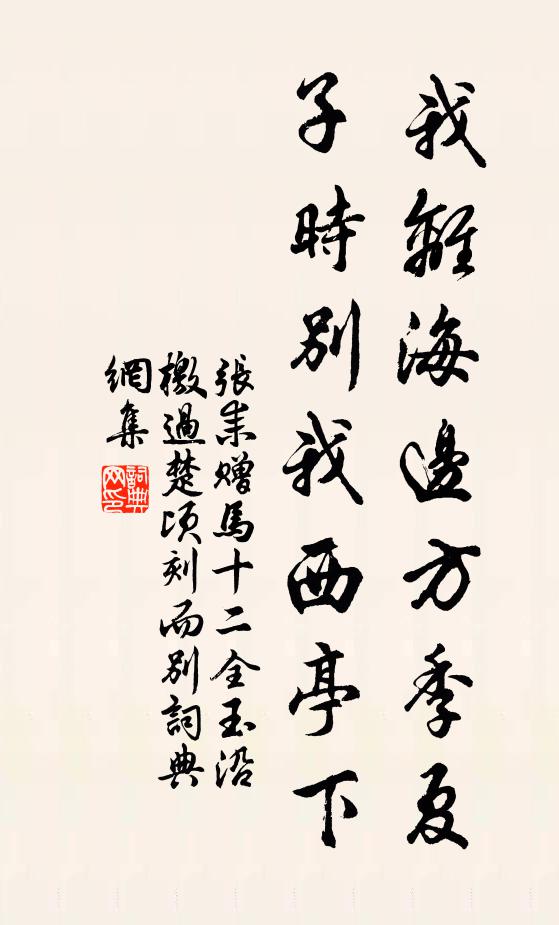 我離海邊方季夏
子時別我西亭下
張耒贈馬十二全玉沿
檄過楚頃刻而別詞典
網集
詞典網印